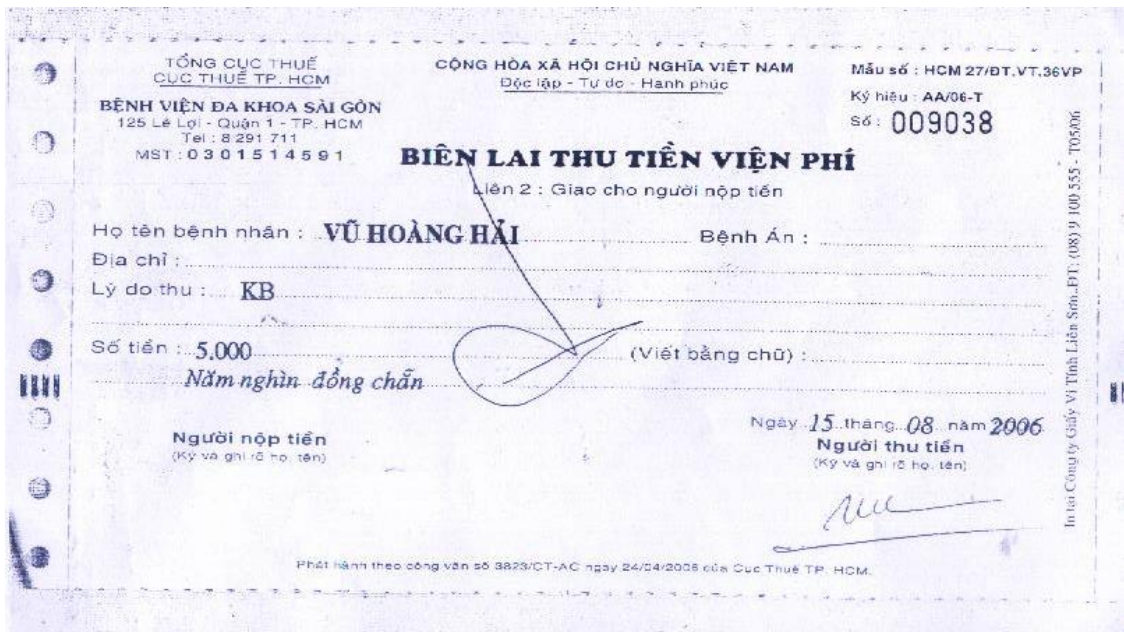 TỔNG CỤC THUẾ
CỤC THUẾ TP. HCM
BỆNH VIỆN ĐA KHOA SÀI GÒN
125 Lê Lợi - Quận 1 - TP. HCM
Tel : 8 291 711
MST : 0301514591
CỘNG HÒA XÃ HỘI CHỦ NGHĨA VIỆT NAM
Độc lập - Tự do - Hạnh phúc
Mẫu số : HCM 27/ĐT.VT.36VP
Ký hiệu : AA/06-T
Số : 009038
BIÊN LAI THU TIỀN VIỆN PHÍ
Liên 2 : Giao cho người nộp tiền
Họ tên bệnh nhân : VŨ HOÀNG HẢI Bệnh Án :
Địa chỉ :
Lý do thu : KB
Số tiền : 5,000 (Viết bằng chữ) :
Năm nghìn đồng chẵn
Ngày 15 tháng 08 năm 2006
Người nộp tiền
(Ký và ghi rõ họ, tên)
Người thu tiền
(Ký và ghi rõ họ, tên)
Phát hành theo công văn số 3823/CT-AC ngày 24/04/2006 của Cục Thuế TP. HCM.
In tại Công ty Giấy Vi Tính Liên Sơn.ĐT: (08) 9 100 555 - T05/06